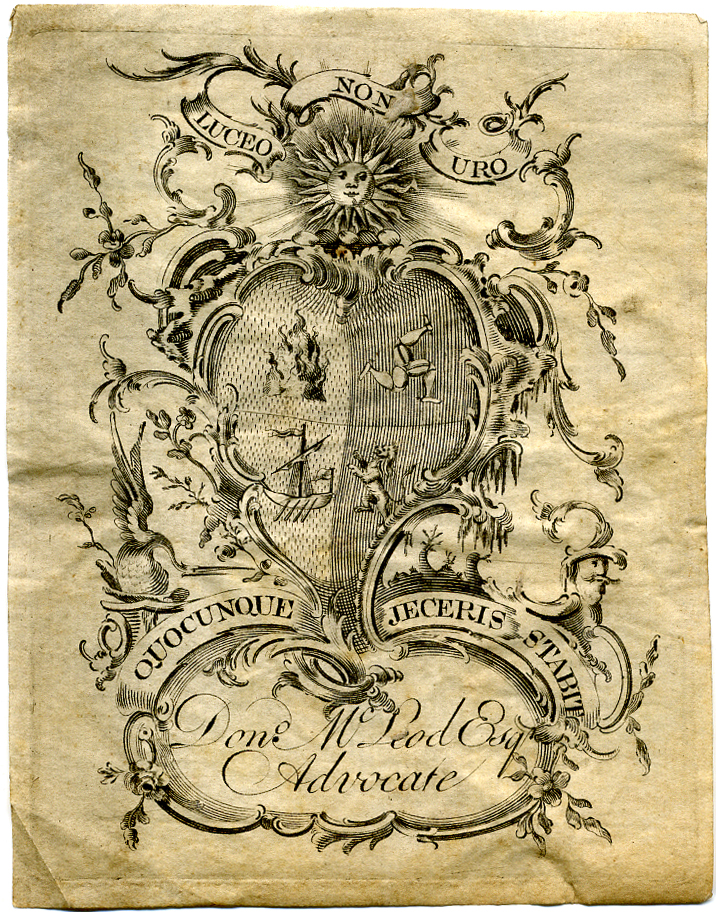 LUCEO NON URO
QUOCUNQUE JECERIS STABIT
Don. McLeod Esqr
Advocate